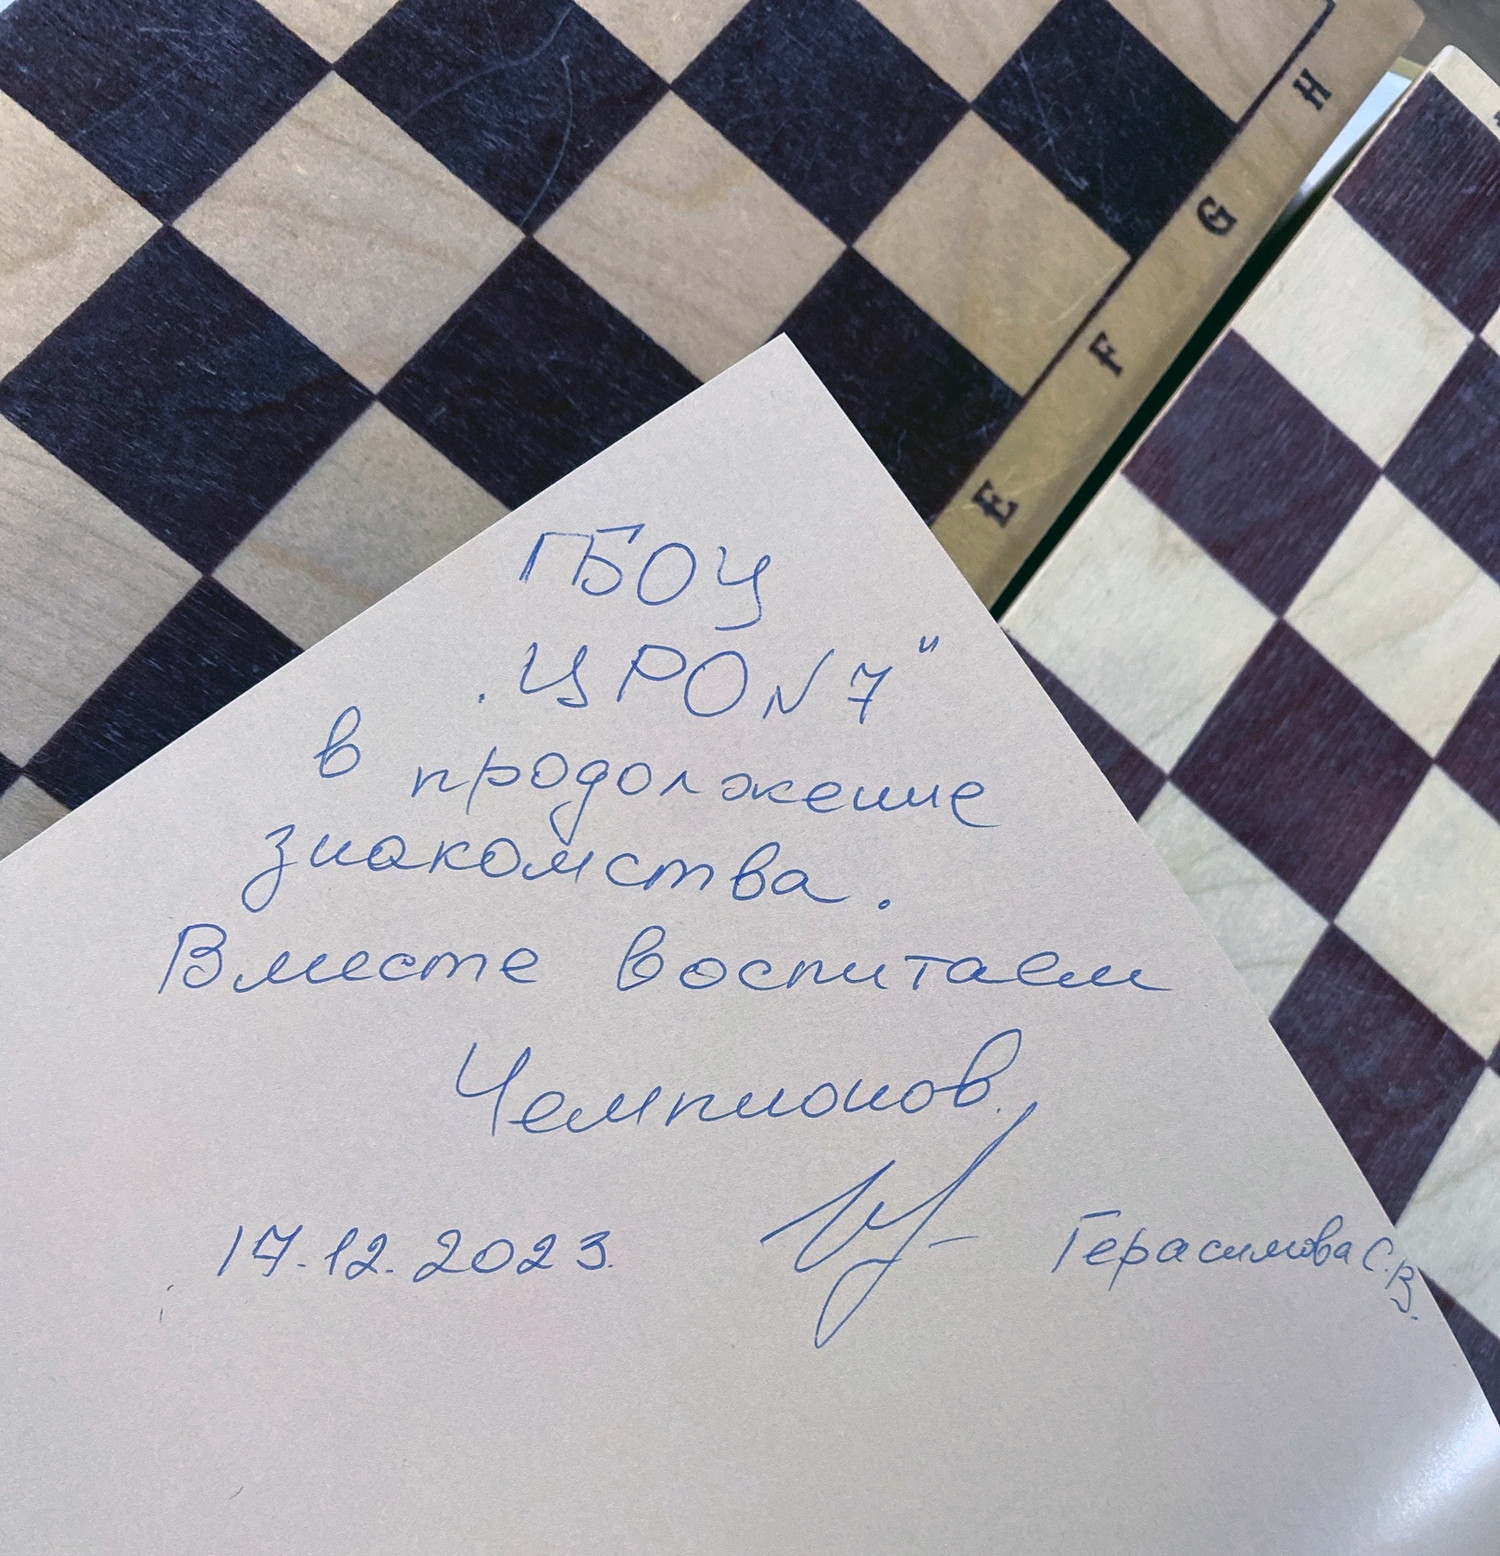 H
G
F
E
ГБОУ
„ЦРО N 7"
в продолжение
знакомства.
Вместе воспитаем
Чемпионов.
17.12.2023. Герасимова С.В.